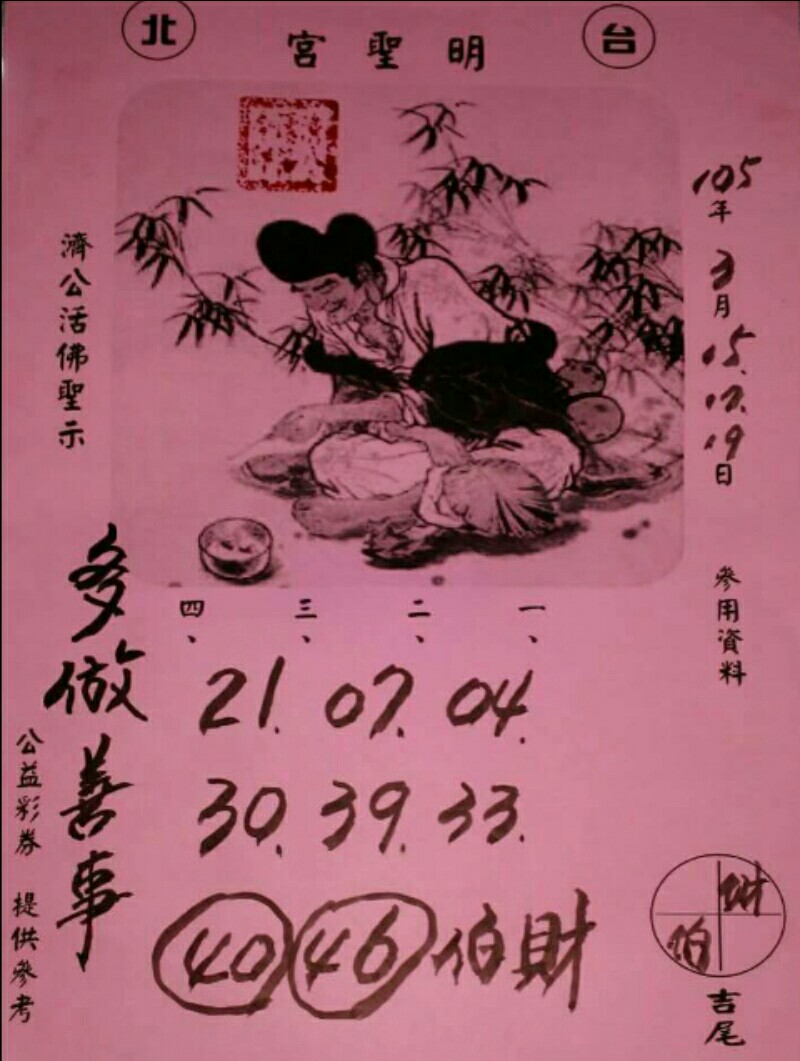 台北
明聖宮
105年3月15.17.19日
參用資料
一、二、三、四、
04.07.21.
33.39.30.
財伯4640
濟公活佛聖示
多做善事
公益彩券 提供參考
財伯
吉尾